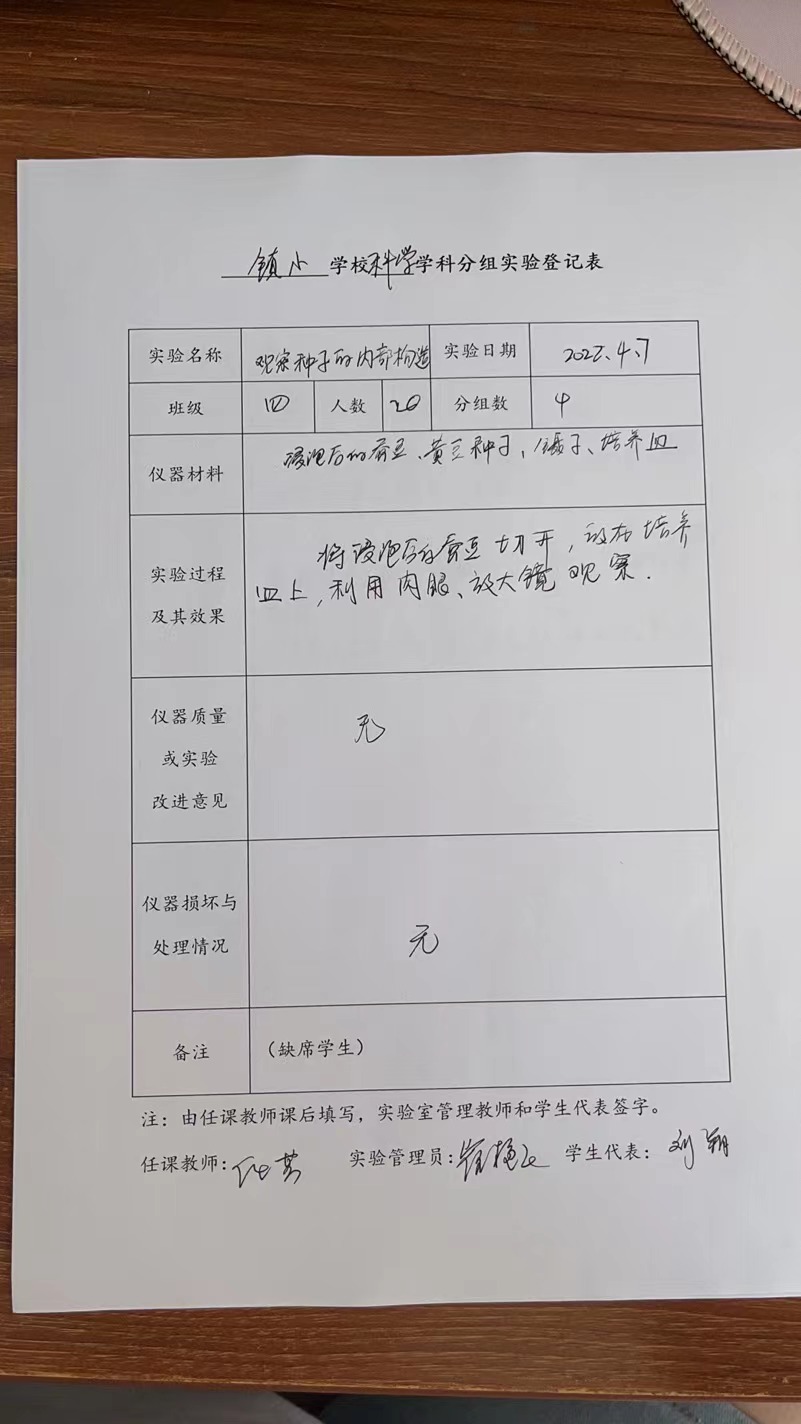 镇小 学校科学学科分组实验登记表
实验名称 观察种子的内部构造 实验日期 2022.4.7
班级 四 人数 20 分组数 4
仪器材料 浸泡后的蚕豆、黄豆种子、镊子、培养皿
实验过程
及其效果
将浸泡后的蚕豆切开,放在培养
皿上,利用肉眼、放大镜观察.
仪器质量
或实验
改进意见
无
仪器损坏与
处理情况
无
备注 (缺席学生)
注:由任课教师课后填写,实验室管理教师和学生代表签字。
任课教师: 实验管理员: 学生代表:刘